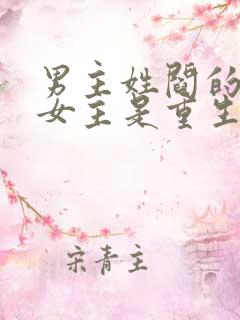 男主姓阎的
女主是重生
宋青主